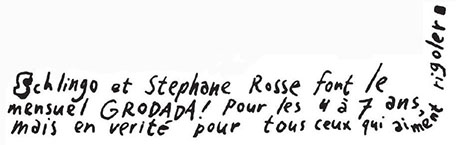 Schlingo et Stephane Rosse font le
mensuel GRODADA! Pour les 4 à 7 ans,
mais en verité pour tous ceux qui aiment rigoler